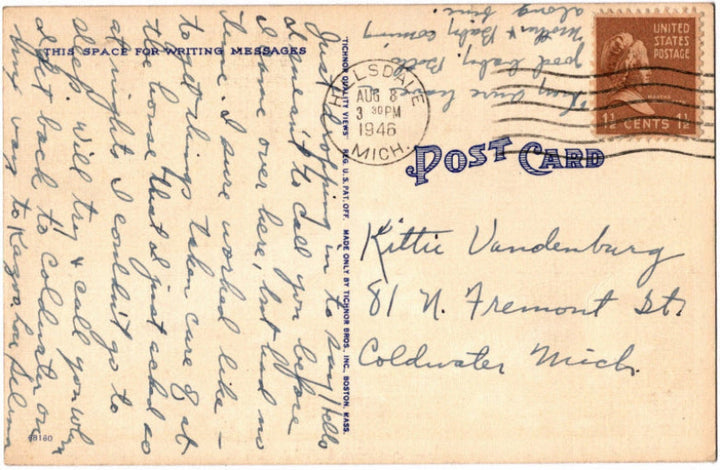 THIS SPACE FOR WRITING MESSAGES
Just dropping in to say Hello
I meant to call you before
I came over here, but had no
time. I sure worked like –
to get things taken care of at
the house that I just ached so
at nights I couldn't go to
sleep. Will try & call you when
I get back to Coldwater on
my way to Kazoo. Love Selma
They sure have
good baby
Mother & Baby coming
along fine.
"TICHNOR QUALITY VIEWS" REG. U.S. PAT. OFF. MADE ONLY BY TICHNOR BROS. INC., BOSTON, MASS.
68160
HILLSDALE
AUG 8
3 30 PM
1946
MICH.
UNITED
STATES
POSTAGE
MARTHA
1½ CENTS 1½
POST CARD
Kittie Vandenburg
81 N. Fremont St.
Coldwater Mich.